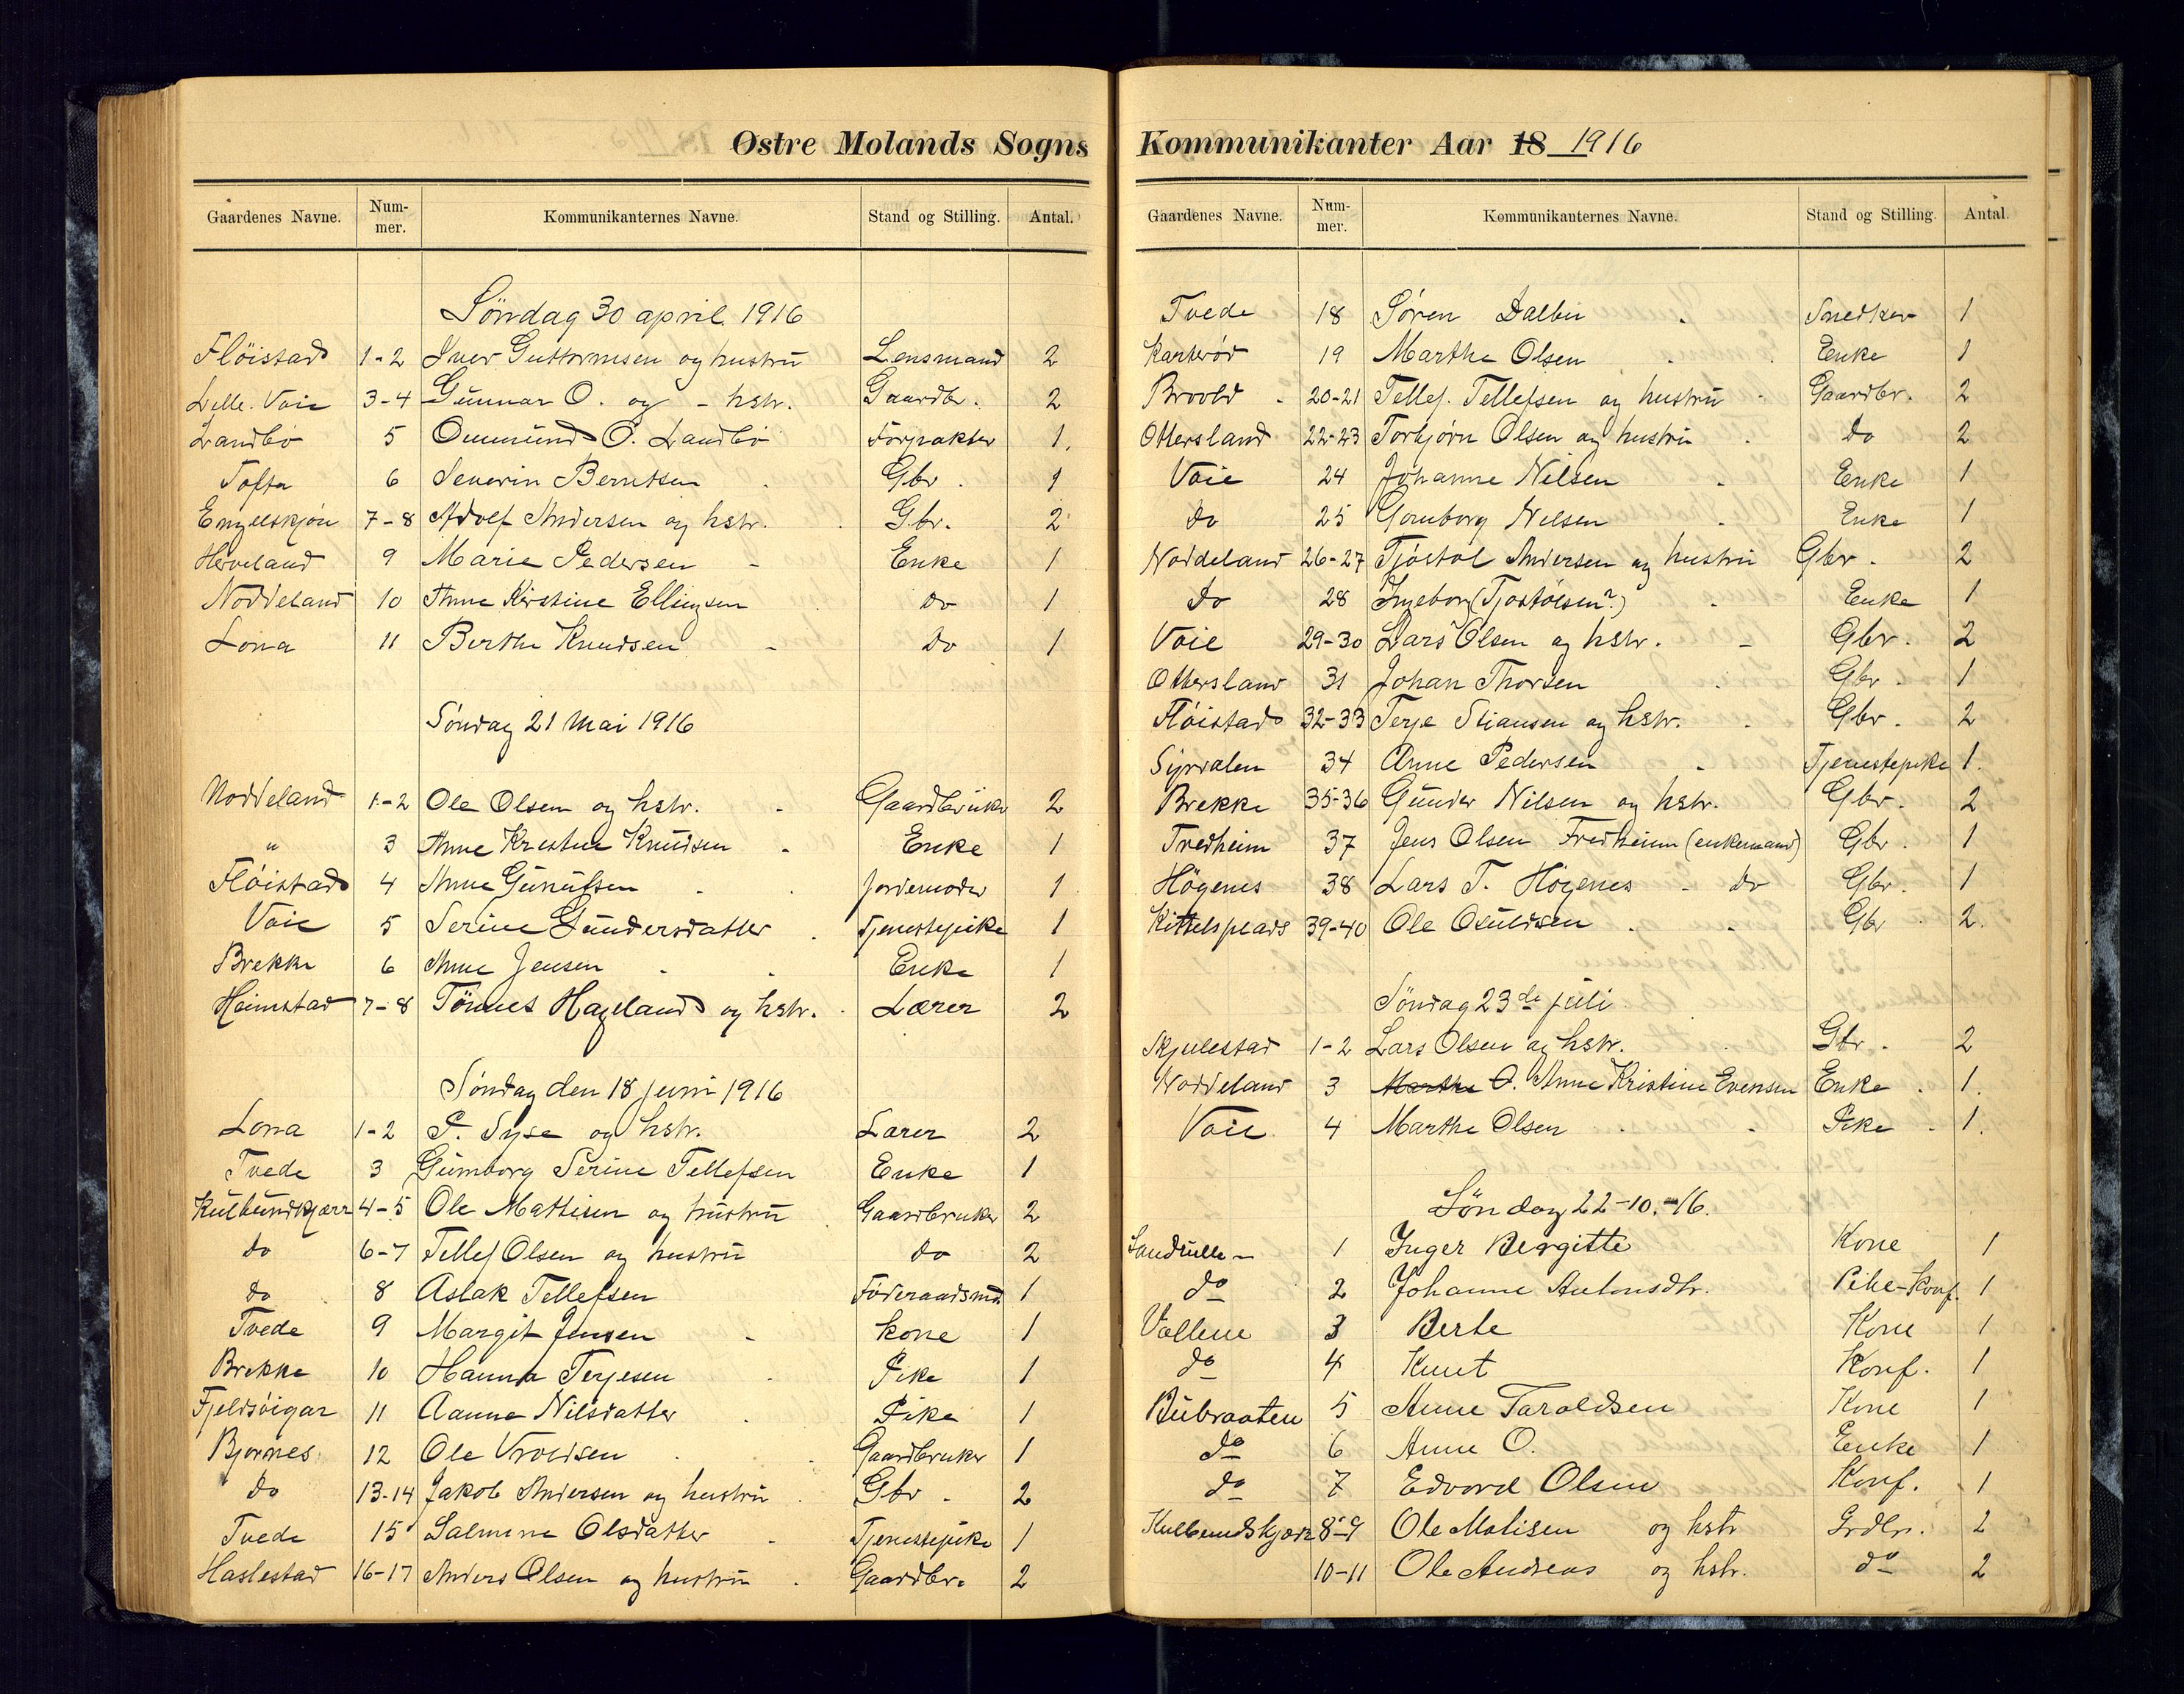 Østre Molands Sogns
Gaardenes Navne. Num-mer. Kommunikanternes Navne. Stand og Stilling. Antal.
Søndag 30 april 1916
Flöistad 1-2 Iver Guttormsen og hustru Lensmand 2
Lille. Voie 3-4 Gunnar O. og - hstr. Gaardbr. 2
Landbö 5 Ommund O. Landbö Forpakter 1.
Tofta 6 Severin Berntsen Gbr. 1
Engelskjön 7-8 Adolf Andersen og hstr. Gbr. 2
Herveland 9 Marie Pedersen - Enke 1
Noddeland 10 Anne Kirstine Ellingsen do 1
Lona 11 Berthe Knudsen - Do 1
Søndag 21 Mai 1916
Noddeland 1-2 Ole Olsen og hstr. - Gaardbruker 2
" 3 Anne Krestine Knudsen - Enke 1
Flöistad 4 Anne Gunufsen - Jordemoder 1
Voie 5 Serine Gundersdatter Tjenestepike 1
Brekke 6 Anne Jensen Enke 1
Heimstad 7-8 Tönnes Hageland og hstr. Lærer 2
Søndag den 18 juni 1916
Lona 1-2 P. Syse og hstr. Lærer 2
Tvede 3 Gumborg Serine Tellefsen Enke 1
Kulbundkjærr 4-5 Ole Mattisen og hustru Gaardbruker 2
do 6-7 Tellef Olsen og hustru do 2
do 8 Aslak Tellefsen Föderaadsmd. 1
Tvede 9 Margit Jensen - kone 1
Brekke 10 Hanna Terjesen Pike 1
Fjeldsöigar 11 Aanne Nilsdatter Pike 1
Bjornes 12 Ole Vroldsen Gaardbruker 1
do 13-14 Jakob Andersen og hustru Gbr - 2
Tvede 15 Salmine Olsdatter - Tjenestepike 1
Haslestad 16-17 Anders Olsen og hustru Gaardbr. 2
Kommunikanter Aar 18 1916
Gaardenes Navne. Num-mer. Kommunikanternes Navne. Stand og Stilling. Antal.
Tvede 18 Søren Dalbu Snedker 1
19 Marthe Olsen Enke 1
Brovold - 20-21 Tellef. Tellefsen og hustru - Gaardbr. 2
Ottersland 22-23 Torbjørn Olsen og hustru do 2
Voie 24 Johanne Nilsen Enke 1
do 25 Nilsen Enke 1
Noddeland 26-27 Tjöstol Andersen og hustru Gbr. 2
do 28 Ingeborg (Tjostolsen?) Enke 1
Voie 29-30 Lars Olsen og hstr. - Gbr. 2
Ottersland 31 Johan Thorsen Gbr. 1
Flöistad 32-33 Terje Stiansen og hstr. Gbr. 2
34 Anne Pedersen - Tjenestepike 1.
Brekke 35-36 Gunder Nilsen og hstr. Gbr. 2
Fredheim 37 Jens Olsen Fredheim (enkemand) Gbr. 1
Högenes 38 Lars T. Högenes - do Gbr. 1
Kittelsplads 39-40 Ole Osuldsen Gbr 2.
Søndag 23de juli
Skjulestad 1-2 Lars Olsen og hstr. Gbr. 2
Noddeland 3 Marthe O. Anne Kristine Evensen Enke 1.
Voie 4 Marthe Olsen - Pike 1.
Søndag 22-10.-16.
1 Inger Bergitte Kone 1
do 2 Johanne Antonsdtr. Pike-Konf. 1
Vollene 3 Berte Kone 1
do 4 Knut Konf. 1
Bubraaten 5 Anne Taroldsen Kone 1
do 6 Anne O. Enke 1
do 7 Edvord Olsen Konf. 1
Kulbundskjær 8-9 Ole Matisen og hstr Grdbr. 2
10-11 Ole Andreas og hstr. do 2